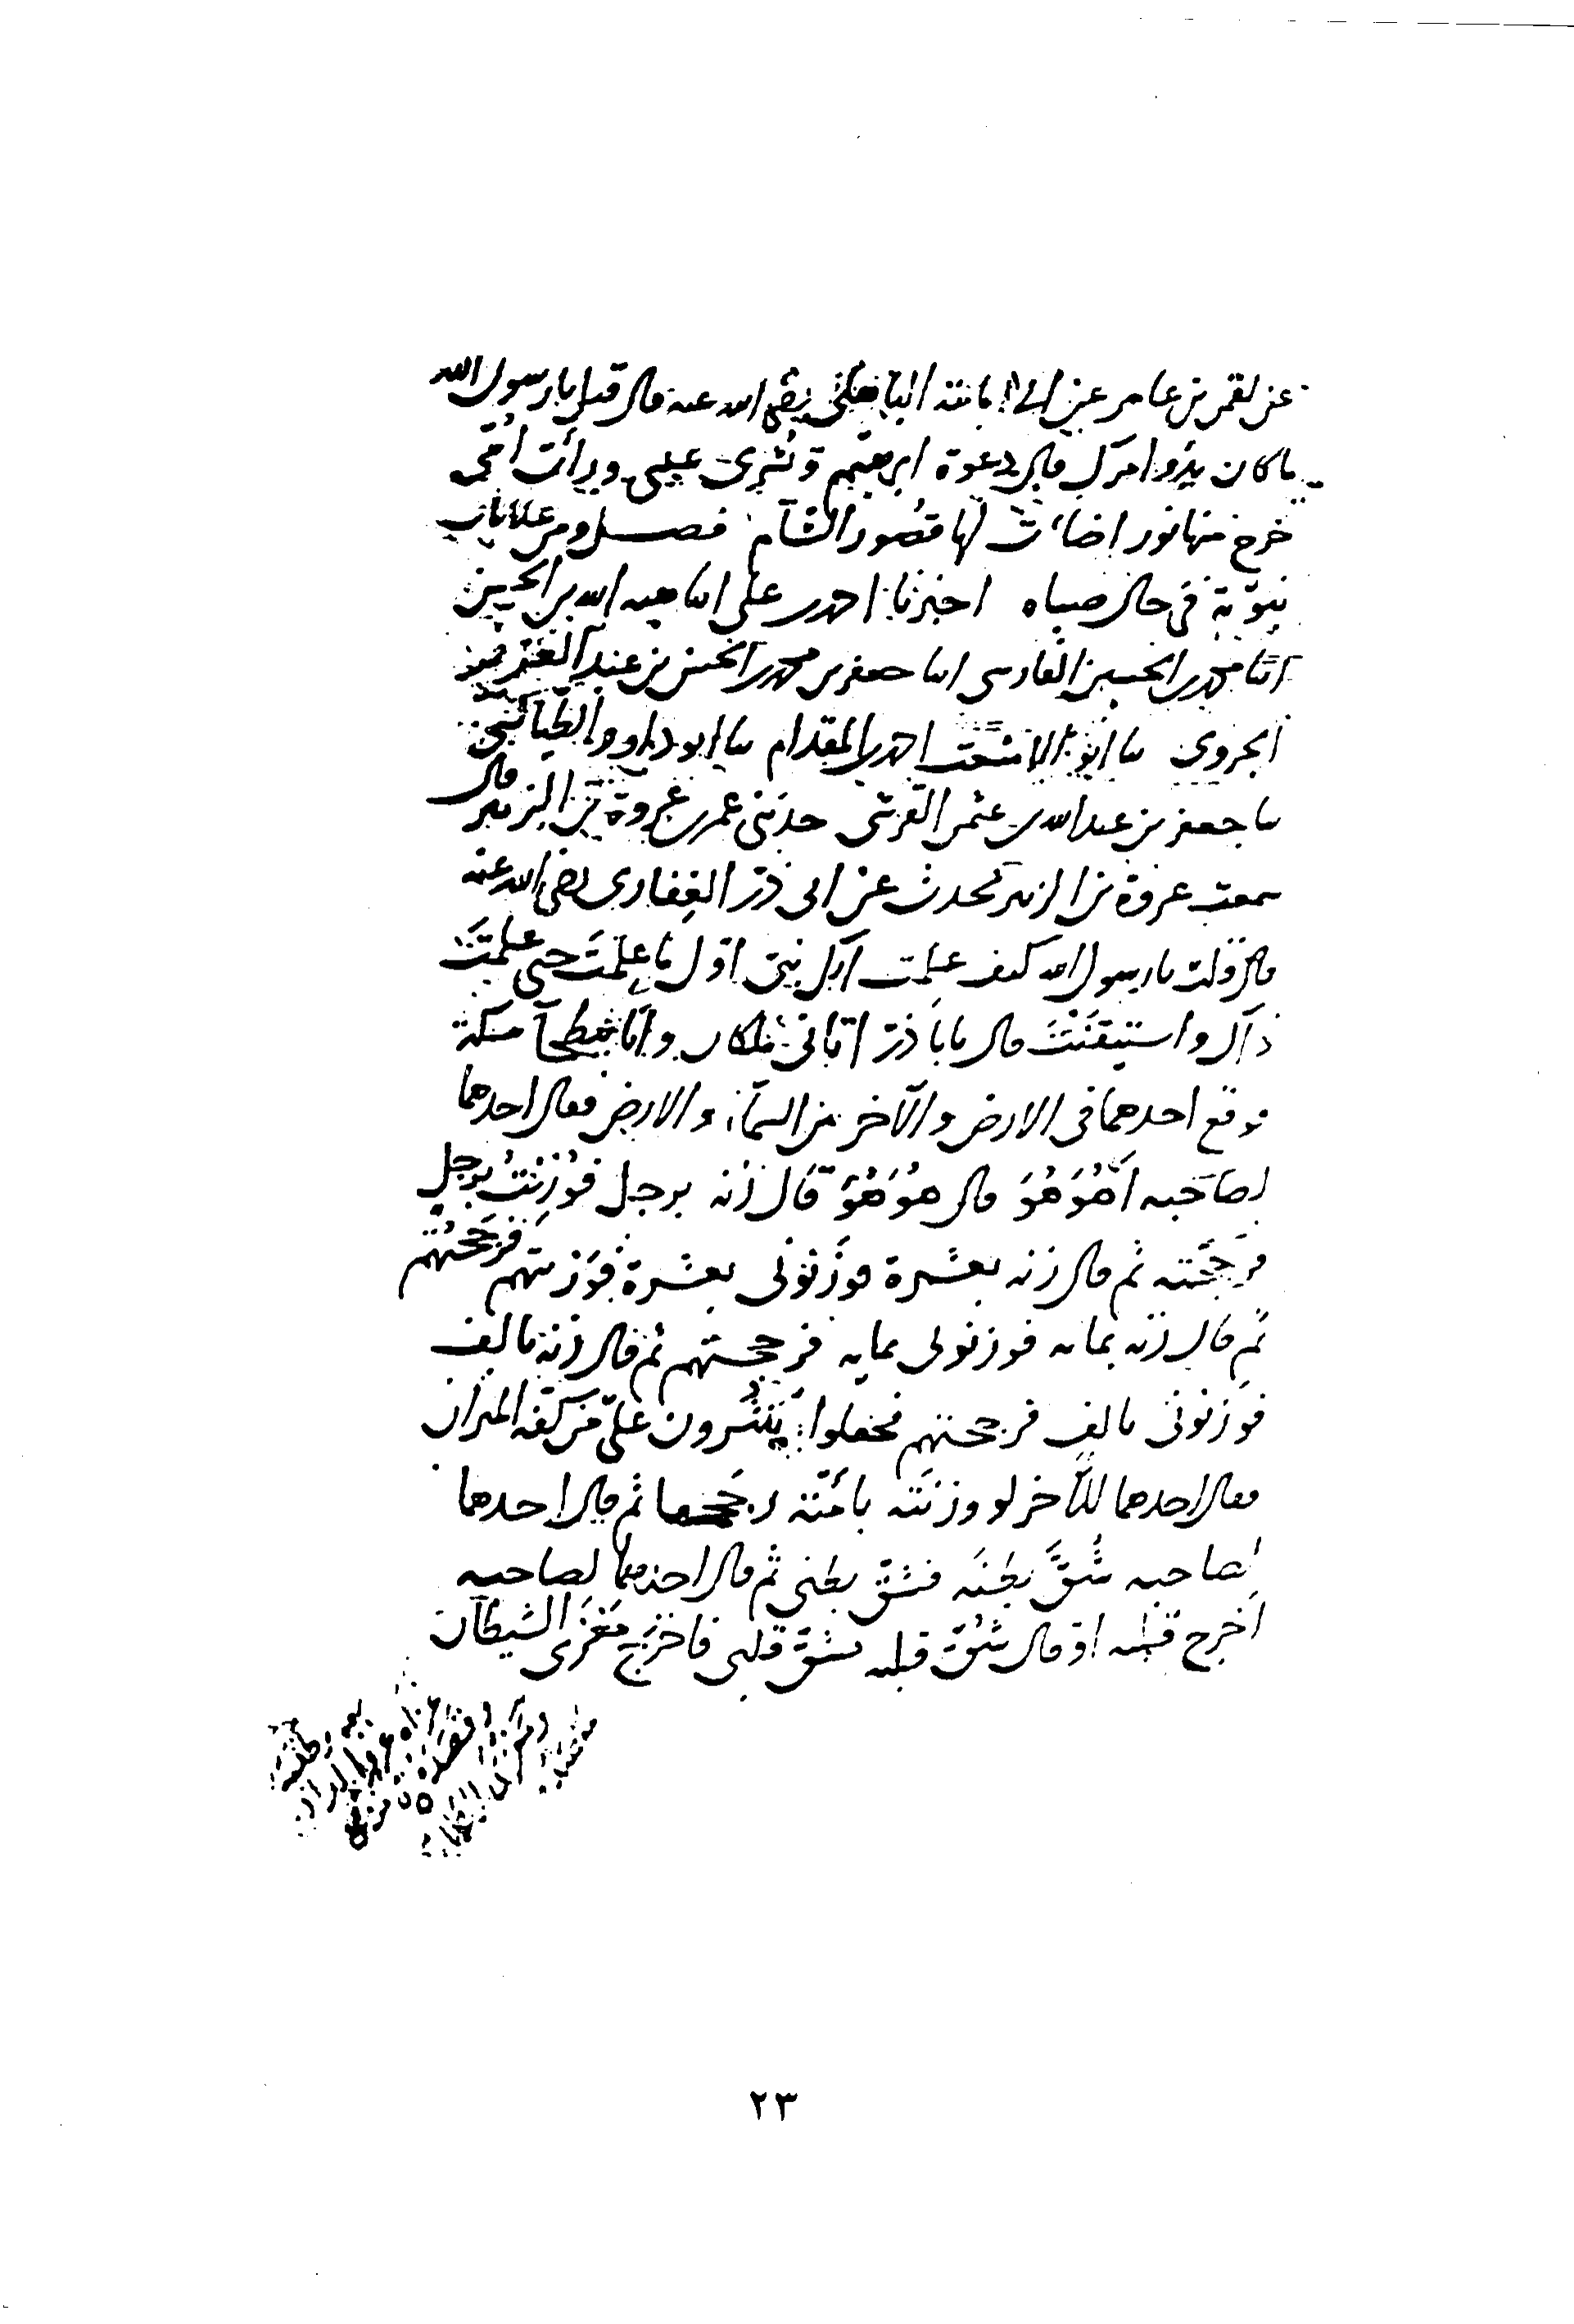 عن لقمن بن عامر عن ابي امامة الباهلي رضي الله عنه قال قيل يا رسول الله
ما كان بدؤ امرك قال دعوة ابرهيم وبشرى عيسى ورأت امي
خرج منها نور اضاءت لها قصور الشام فصل ومن علامات
نبوته في حال صباه اخبرنا احمد بن علي انا هبة الله بن الحسين
انا محمد بن الحسين الفارسي انا جعفر بن محمد بن الحسن بن عبد العزيز
الجروي نا ابو الاشعث احمد بن المقدام نا ابو داوود الطيالسي
نا جعفر بن عبد الله بن عثمن القرشي حدثني عمر بن عروة بن الزبير قال
سمعت عروة بن الزبير يحدث عن ابي ذر الغفاري رضي الله عنه
قال قلت يا رسول الله كيف علمت انك نبي اول ما علمت حتى علمت
ذلك واستيقنت قال يابا ذر اتاني ملكان وانا ببطحآ مكة
فوقع احدهما في الارض والآخر بين السمآء والارض فقال احدهما
لصاحبه أهو هو قال هو هو قال زنه برجل فوزنت برجل
فرجحته ثم قال زنه بعشرة فوزنوني بعشرة فوزنتهم فرجحتهم
ثم قال زنه بمايه فوزنوني بمايه فرجحتهم ثم قال زنه بالف
فوزنوني بالف فرجحتهم فجعلوا ينتثرون علي من كفة الميزان
فقال احدهما للآخر لو وزنته بامته رجحها ثم قال احدهما
لصاحبه شق بطنه فشق بطني ثم قال احدهما لصاحبه
اخرج قلبه او قال شق قلبه فشق قلبي فاخرج مغمز الشيطان
٢٣